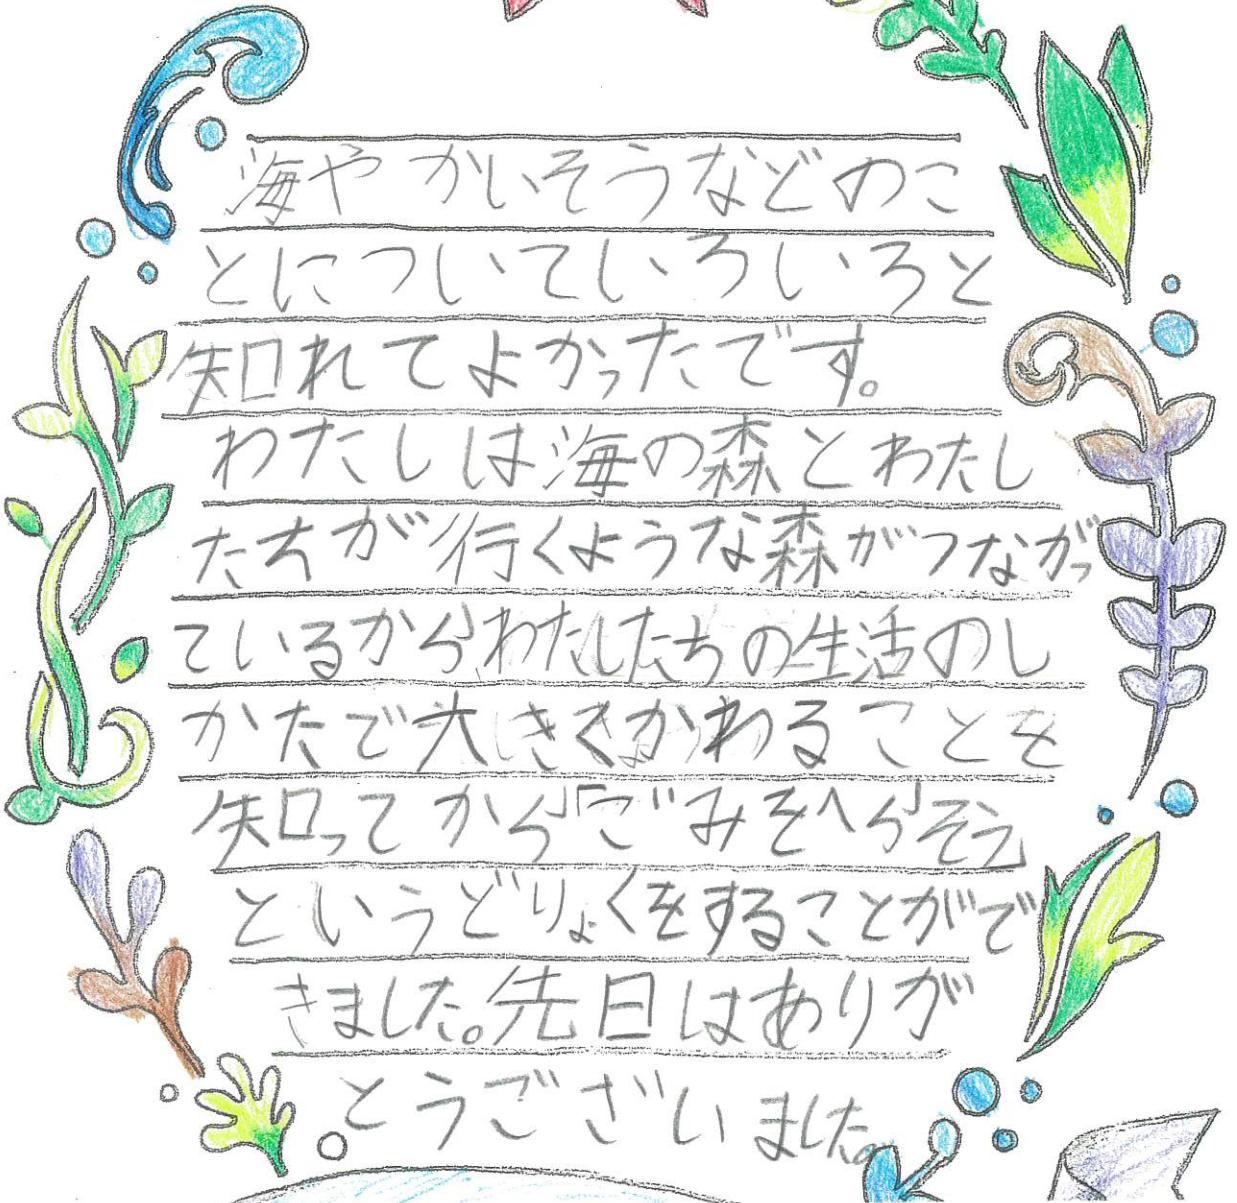 海やかいそうなどのこ
とについていろいろと
知れてよかったです。
わたしは海の森とわたし
たちが行くような森がつながっ
ているからわたしたちの生活のし
かたで大きくかわることを
知ってから「ごみをへらそう」
というどりょくをすることがで
きました。先日はありが
とうございました。